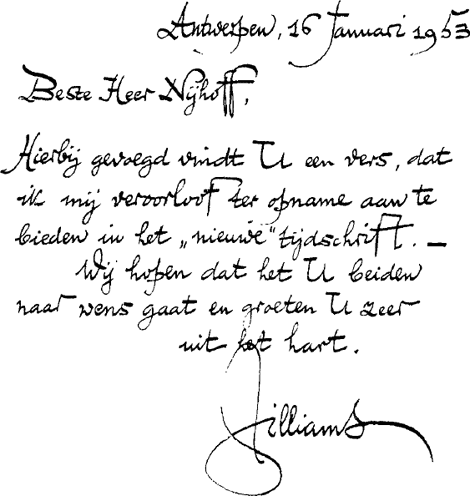 Antwerpen, 16 Januari 1953
Beste Heer Nijhoff,
Hierbij gevoegd vindt U een vers, dat
ik mij veroorloof ter opname aan te
bieden in het „nieuwe“ tijdschrift. —
Wij hopen dat het U beiden
naar wens gaat en groeten U zeer
uit het hart.
Jilliams